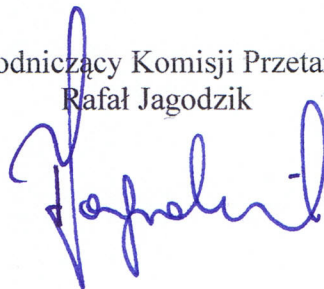 odniczący Komisji Przeta
Rafał Jagodzik